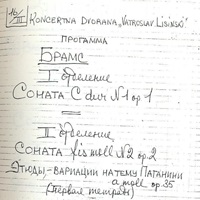 16/III KONCERTNA DVORANA „VATROSLAV LISINSKI"
ПРОГРАММА
БРАМС
I отделение
СОНАТА C dur N1 op 1
II отделение
СОНАТА fis moll N2 op. 2
ЭТЮДЫ-ВАРИАЦИИ НА ТЕМУ ПАГАНИНИ
a moll op. 35
(первая тетрадь)